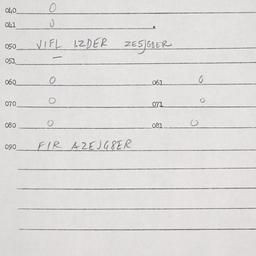 040 0
041 0
050 VIFL IZDER ZESJGGER
051 —
060 0 061 0
070 0 071 0
080 0 081 0
090 FIR AZEJGBER